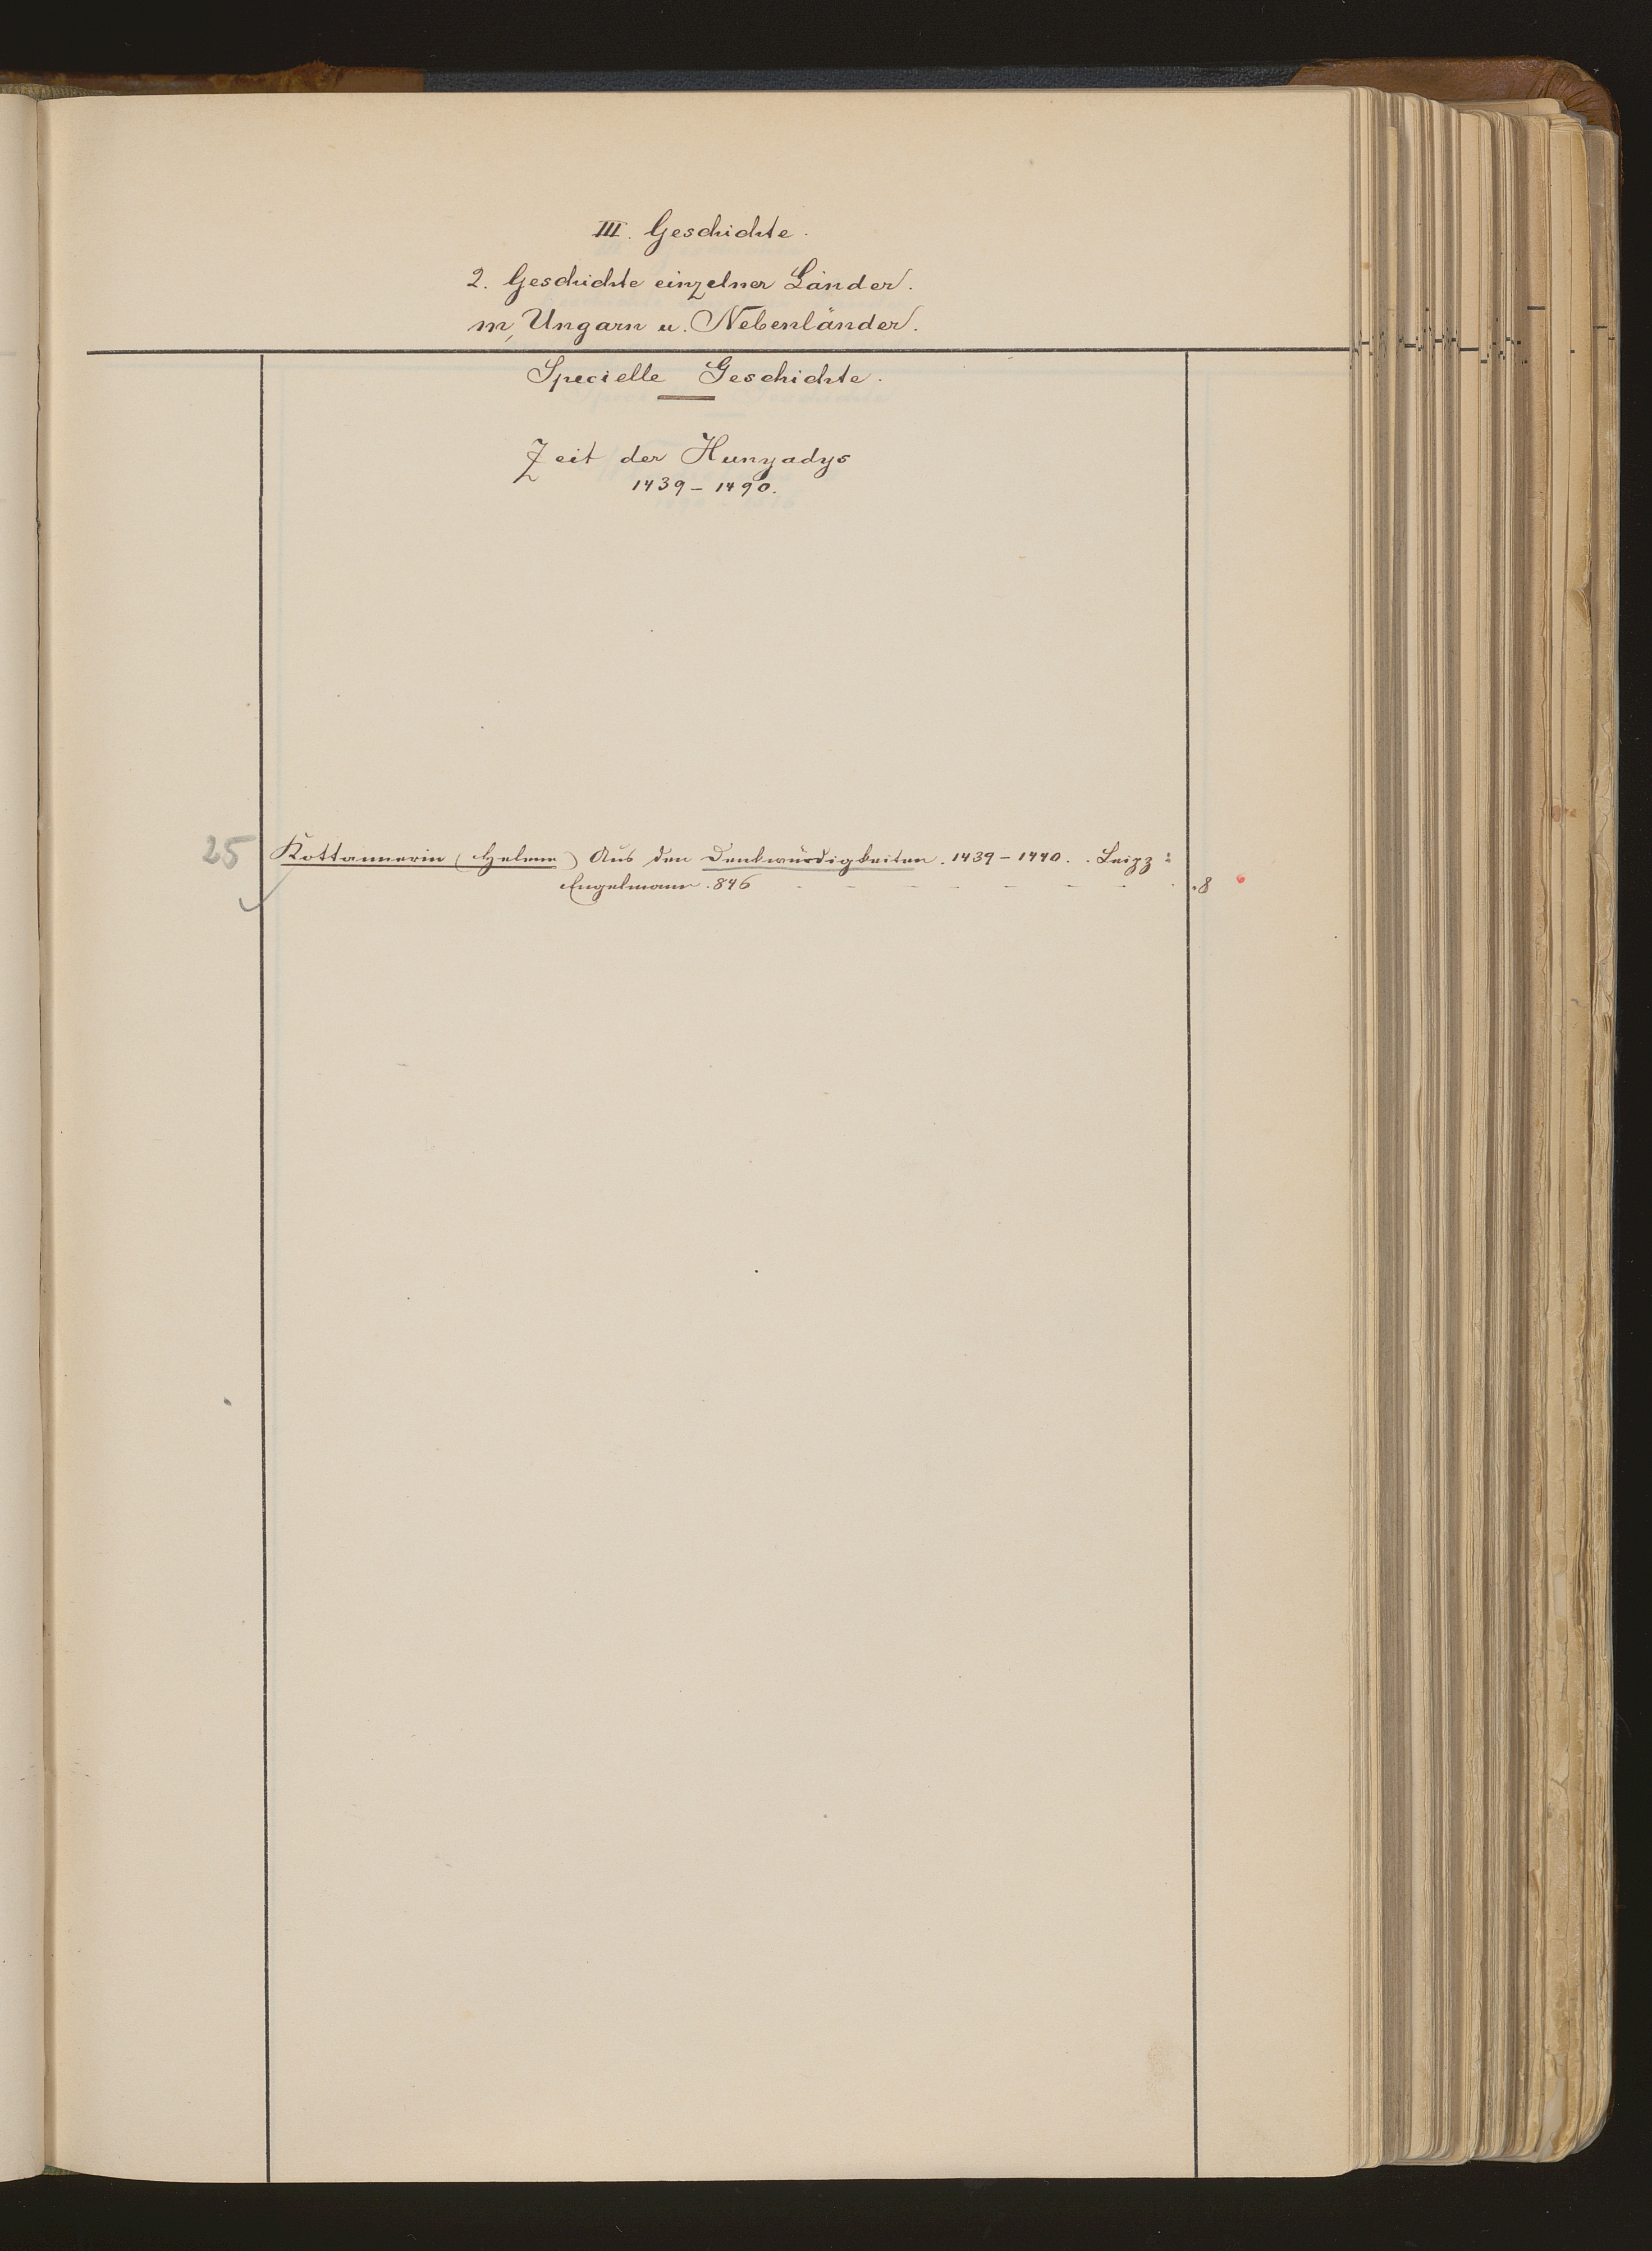 III. Geschichte.
2. Geschichte einzelner Länder.
m, Ungarn u. Nebenländer.
Specielle Geschichte.
Zeit der Hunyadys
1439 – 1490.
25 Kottannerin (Helene) Aus den Denkwürdigkeiten. 1439 – 1440. . Leipz:
Engelmann. 846 - - - - - - - .8